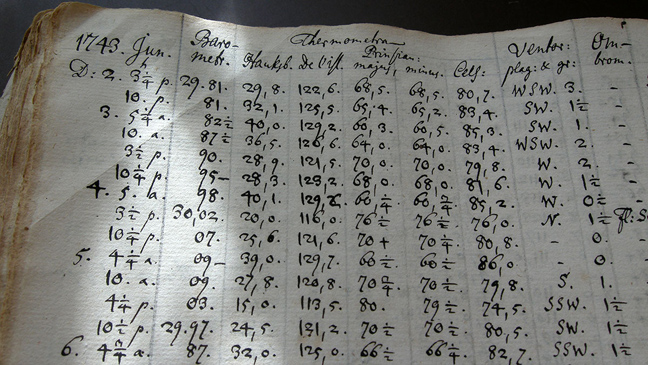 1743. Jun. Baro- Thermometra Ventor: Om-
D: h metr. Hauksb. de l'Isl. Prinsian: majus, minus. Cels: plag: & gr: brom.
2. 3¼ p. 29.81. 29,8. 122,6. 68,5. 68,5. 80,7. WSW. 3. -
10. p. 81. 32,1. 125,5. 65,4. 65,2. 83,4. SW. 1½ -
3. 5¼ a. 82½ 40,0. 129,2. 60,3. 60,5. 85,3. SW. 1. -
10. a. 87½ 36,5. 126,6. 64,0. 64,0. 83,4. WSW. 2. -
3½ p. 90. 28,9. 121,5. 70,0. 70,0. 79,8. W. 2. -
10¼ p. 95- 28,3. 123,2. 68,0. 68,0. 81,6. W. 1½ -
4. 5. a. 98. 40,1. 129, 60¼ 60 85,2. W. 0½ -
3½ p. 30,02. 20,0. 116,0. 76½ 76½ 76,0. N. 1½
10¼ p. 07. 25,6. 121,6. 70+ 70¼ 80,8. - 0. -
5. 4¼ a. 09- 39,0. 129,7. 60½ 60½ 86,0 - 0. -
10. a. 09. 27,8. 120,8. 70 70½ 79,8. S. 1. -
4¼ p. 03. 15,0. 113,5. 80. 79½ 74,5. SSW. 1½
10½ p. 29.97. 24,5. 121,2. 70½ 70½ 80,5. SW. 1½
6. 4 a. 87. 32,0. 125,0. 66½ 66¼ 82,7. SSW. 1½